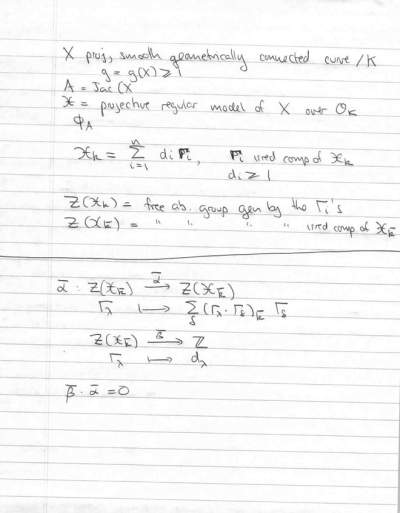 X proj, smooth geometrically connected curve / K
g = g(X) ≥ 1
A = Jac (X
𝒳 = projective regular model of X over O_K
Φ_A
𝒳_k = Σ_{i=1}^{n} d_i Γ_i, Γ_i irred comp of 𝒳_k
d_i ≥ 1
Z(𝒳_k) = free ab. group gen by the Γ_i's
Z(𝒳_k̄) = " " " " irred comp of 𝒳_k̄
ᾱ : Z(𝒳_k̄) →^ᾱ Z(𝒳_k̄)
Γ_λ ↦ Σ_δ (Γ_λ · Γ_δ)_k̄ Γ_δ
Z(𝒳_k̄) →^β̄ ℤ
Γ_λ ↦ d_λ
β̄ · ᾱ = 0